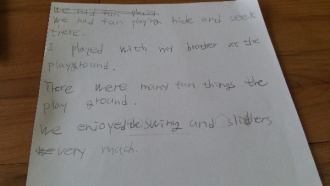 We had fun playing
We had fun playing hide and seek
there.
I played with my brother at the
playground.
There were many fun things the
play ground.
We enjoyed the swing and sliders
very much.